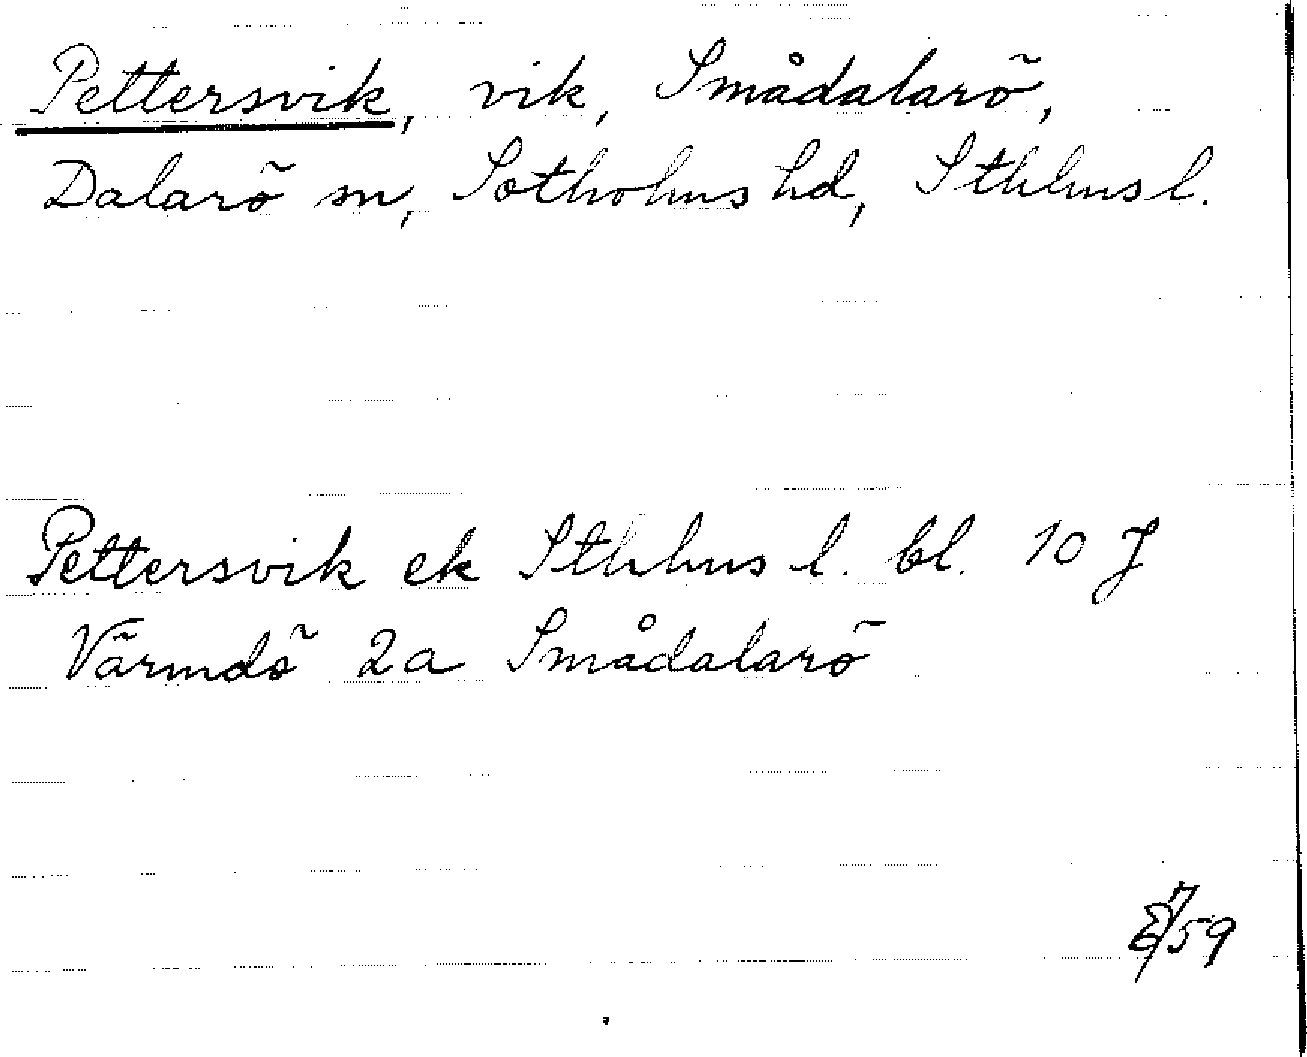 Pettersvik, vik, Smådalarö,
Dalarö sn, Sotholms hd, Sthlms l.
Pettersvik ek Sthlms l. bl. 10 J
Värmdö 2a Smådalarö
59